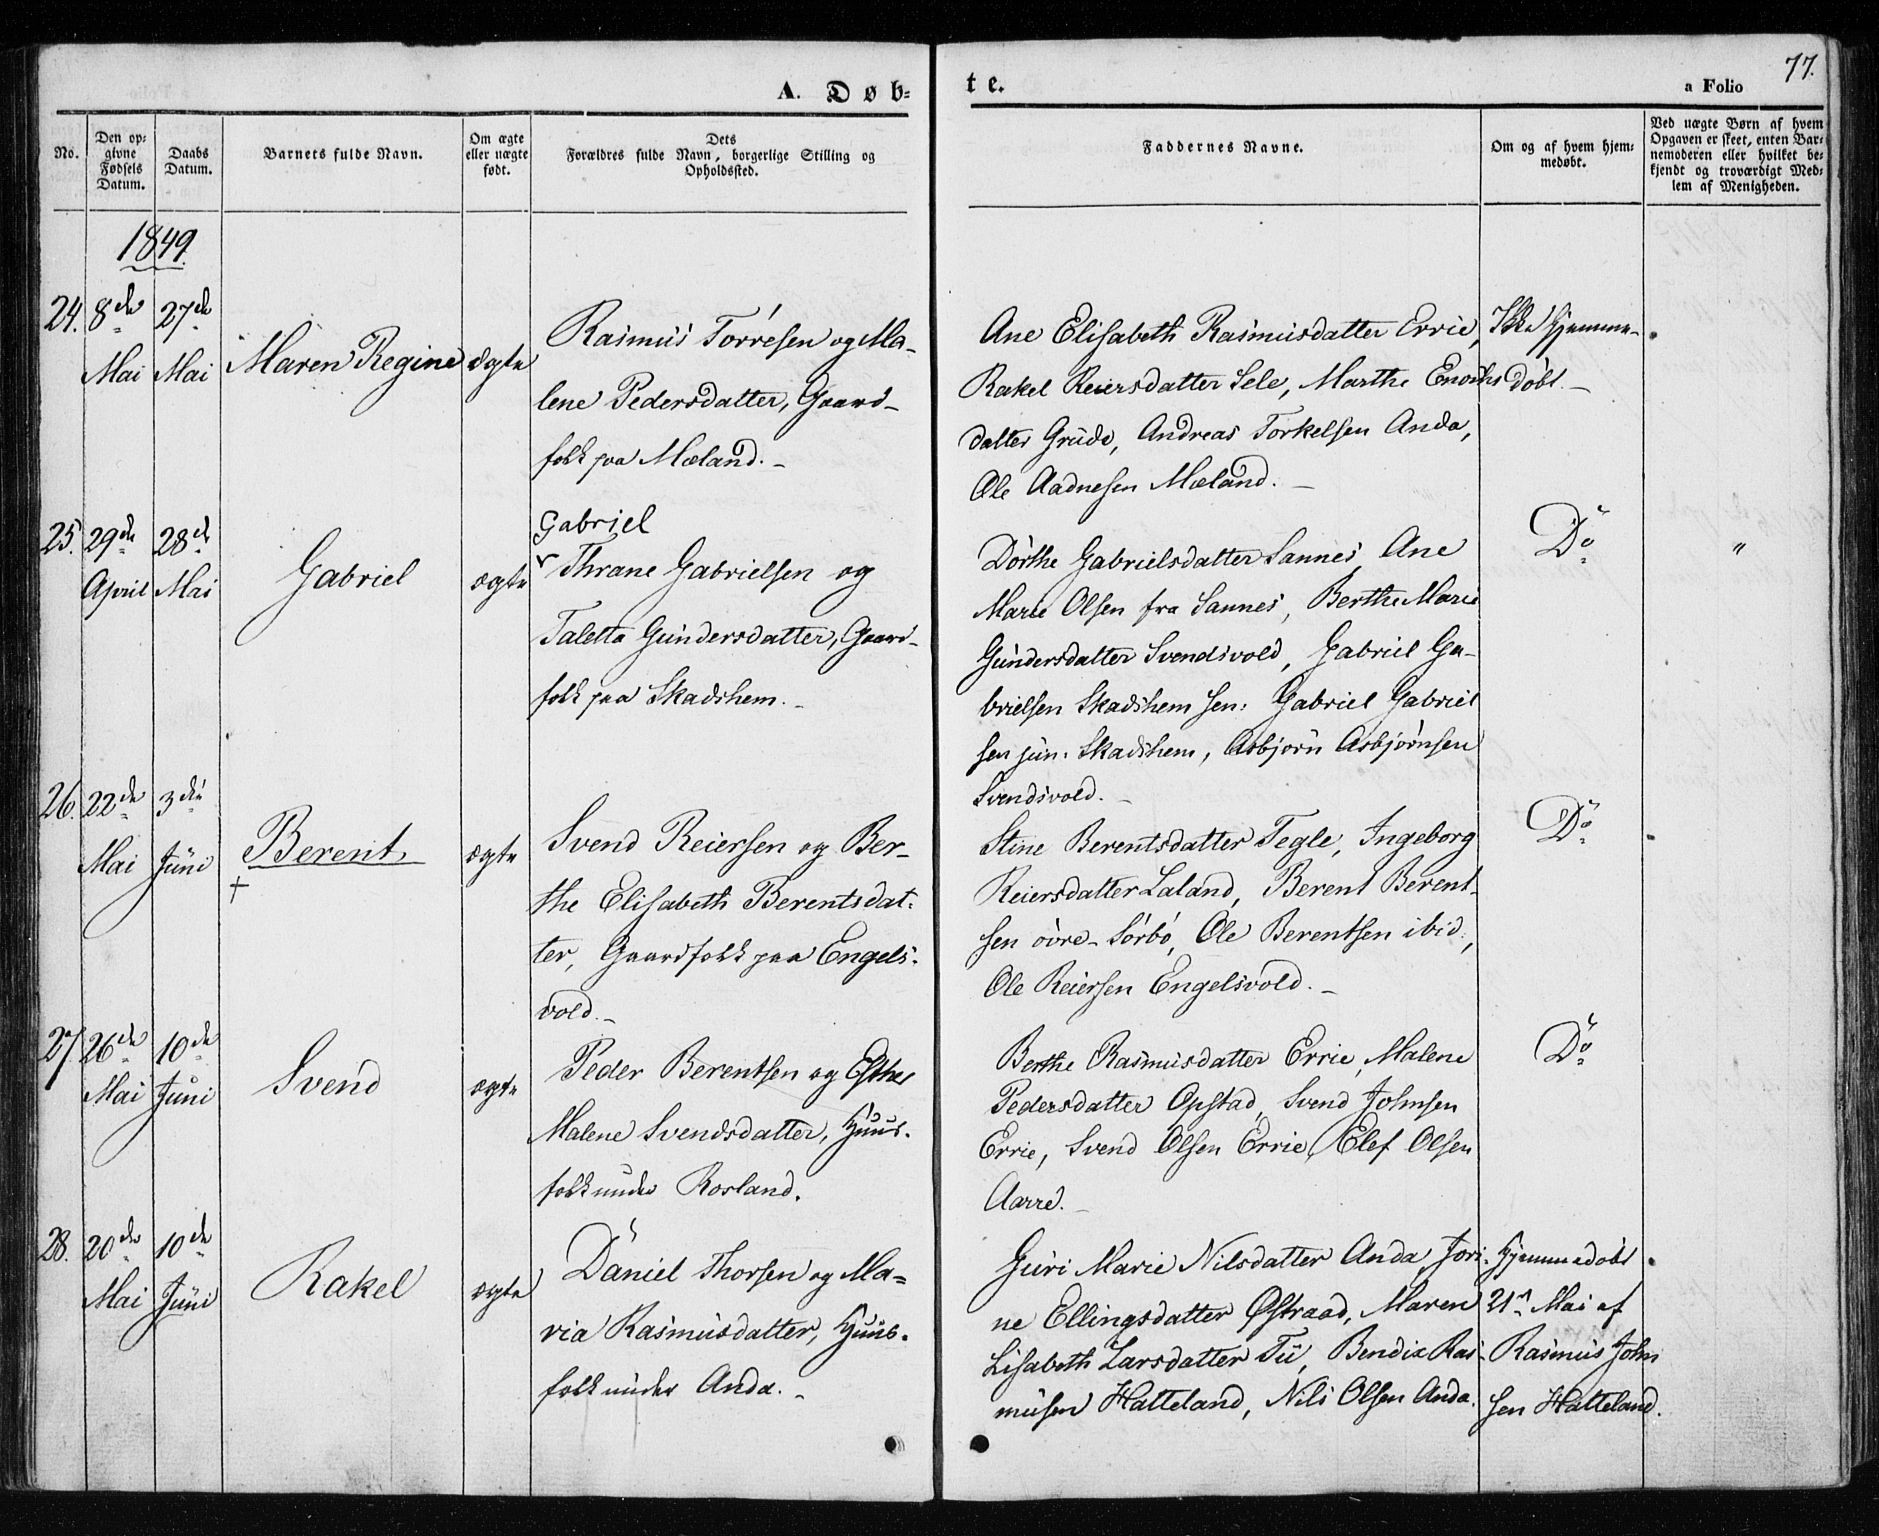 A. Døb-
te.
a Folio
77.
No.
Den op-
givne
Fødsels
Datum.
Daabs
Datum.
Barnets fulde Navn.
Om ægte
eller uægte
født.
Dets
Forældres fulde Navn, borgerlige Stilling og
Opholdssted.
Faddernes Navne.
Om og af hvem hjem-
medøbt.
Ved uægte Børn af hvem
Opgaven er skeet, enten Bar-
nemoderen eller hvilket be-
kjendt og troværdigt Med-
lem af Menigheden.
1849.
24. 8de Mai
27de Mai
Maren Regine
ægte
Rasmus Torresen og Ma-
lene Pedersdatter, Gaard-
folk paa Mæland.-
Ane Elisabeth Rasmusdatter Errie,
Rakel Reiersdatter Sele, Marthe Enochs
datter Grude, Andreas Torkelsen Anda,
Ole Aadnesen Mæland.-
Ikke hjemme-
døbt.-
25. 29de April
28de Mai
Gabriel
ægte
Gabriel
Thrane Gabrielsen og
Taletta Gundersdatter, Gaard-
folk paa Skadshem.-
Dorthe Gabrielsdatter Sannes, Ane
Marie Olsen fra Sannes, Berthe Marie
Gundersdatter Svendsvold, Gabriel Ga-
brielsen Skadshem sen: Gabriel Gabriel
sen jun: Skadshem, Asbjørn Asbjørnsen
Svendsvold.-
Do
"
26. 22de Mai
3die Juni
Berent
+
ægte
Svend Reiersen og Ber-
the Elisabeth Berentsdat-
ter, Gaardfolk paa Engels-
vold.-
Stine Berentsdatter Tegle, Ingeborg
Reiersdatter Laland, Berent Berent-
sen øvre-Sørbø, Ole Berentsen ibid.,
Ole Reiersen Engelsvold.-
Do
27. 26de Mai
10de Juni
Svend
ægte
Peder Berentsen og Esther
Malene Svendsdatter, Huus-
folk under Rosland.
Berthe Rasmusdatter Errie, Malene
Pedersdatter Opstad, Svend Johnsen
Errie, Svend Olsen Errie, Elef Olsen
Aarre.-
Do
28. 20de Mai
10de Juni
Rakel
ægte
Daniel Thorsen og Ma-
ria Rasmusdatter, Huus-
folk under Anda.-
Guri Marie Nilsdatter Anda, Jori-
ne Ellingsdatter Østraad, Maren
Lisabeth Larsdatter Tu, Bendix Ras-
musen Hatteland, Nils Olsen Anda.
Hjemmedøbt
21 Mai af
Rasmus John
sen Hatteland.